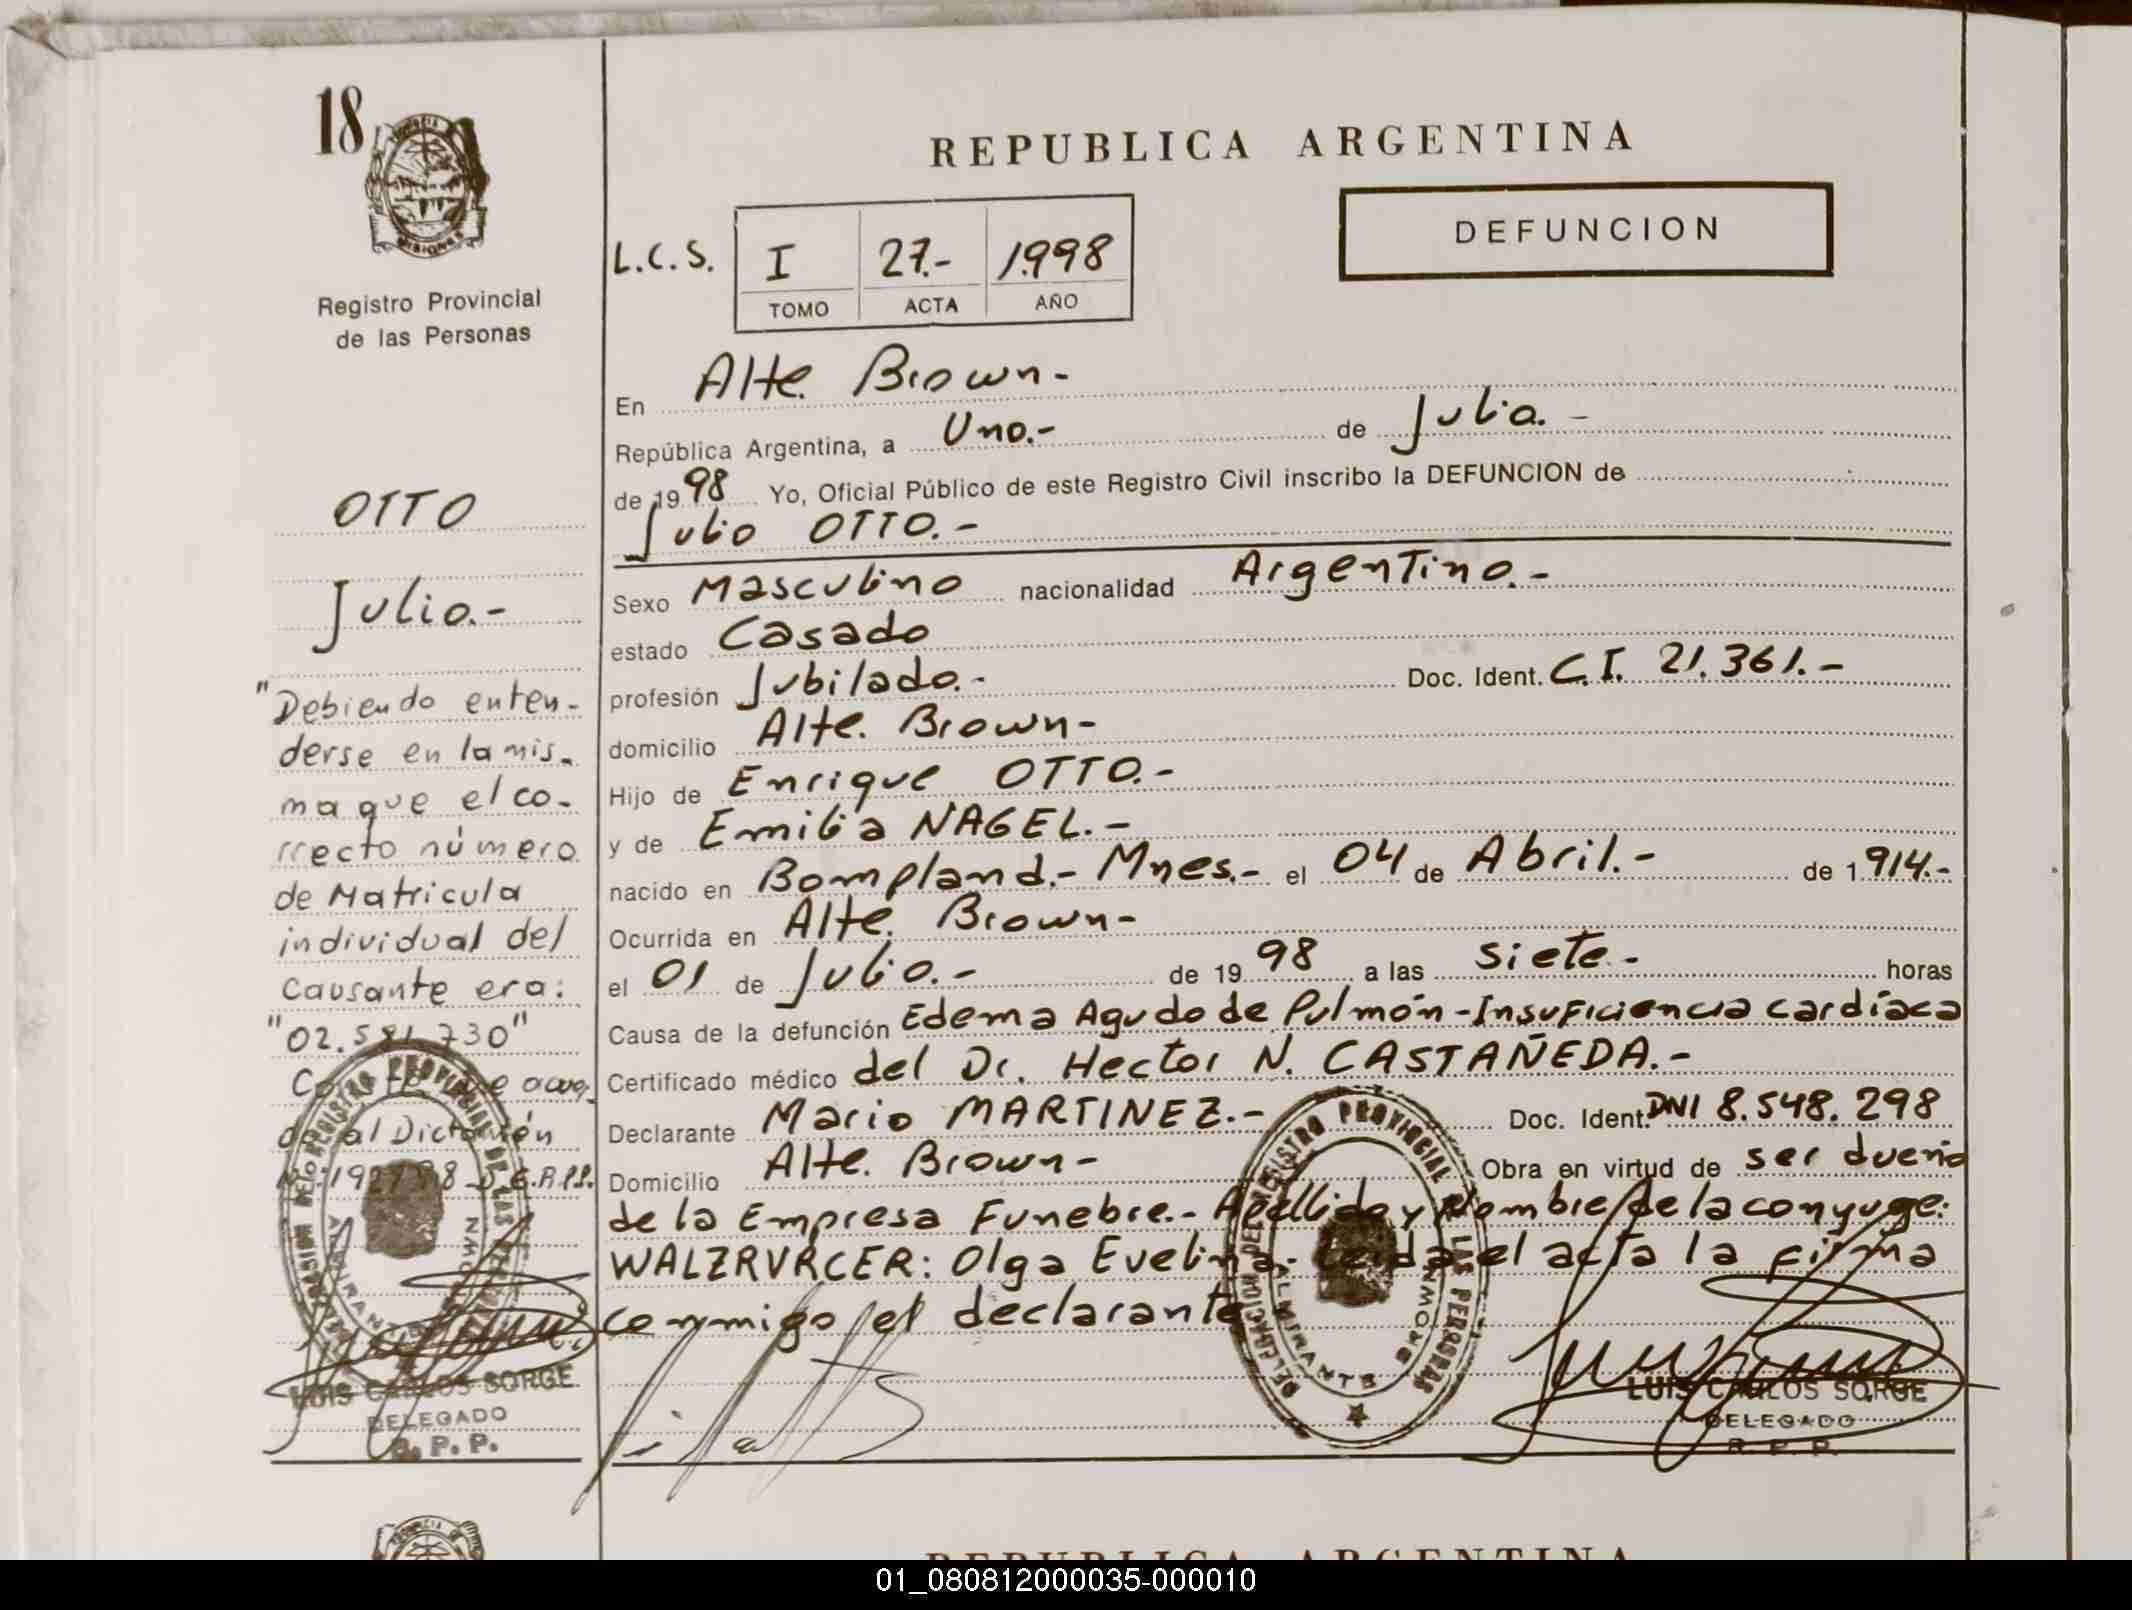 18
PROVINCIA
MISIONES
Registro Provincial
de las Personas
OTTO
Julio.-
"Debiendo enten-
derse en la mis-
ma que el co-
rrecto número
de Matricula
individual del
Causante era:
"02.581.730"
al Dictamen
LUIS CARLOS SORGE
DELEGADO
R. P. P.
REPUBLICA ARGENTINA
DEFUNCION
L.C.S. I 27.- 1998
TOMO ACTA AÑO
En Alte. Brown-
República Argentina, a Uno.- de Julio.-
de 1998 Yo, Oficial Público de este Registro Civil inscribo la DEFUNCION de
Julio OTTO.-
Sexo Masculino nacionalidad Argentino.-
estado Casado
profesión Jubilado.- Doc. Ident. C.I. 21.361.-
domicilio Alte. Brown-
Hijo de Enrique OTTO.-
y de Emilia NAGEL.-
nacido en Bompland.- Mnes.- el 04 de Abril.- de 1914.-
Ocurrida en Alte. Brown-
el 01 de Julio.- de 1998 a las siete.- horas
Causa de la defunción Edema Agudo de Pulmón-Insuficiencia cardíaca
Certificado médico del Dr. Hector N. CASTAÑEDA.-
Declarante Mario MARTINEZ.- Doc. Ident. DNI 8.548.298
Domicilio Alte. Brown- Obra en virtud de ser dueño
de la Empresa Funebre.- Apellido y Nombre de la conyuge:
WALZRVRCER: Olga Evelina- Leida el acta la firma
conmigo el declarante
DELEGACION DEL REGISTRO PROVINCIAL DE LAS PERSONAS
ALMIRANTE BROWN
LUIS CARLOS SORGE
DELEGADO
R. P. P.
REPUBLICA ARGENTINA
01_080812000035-000010